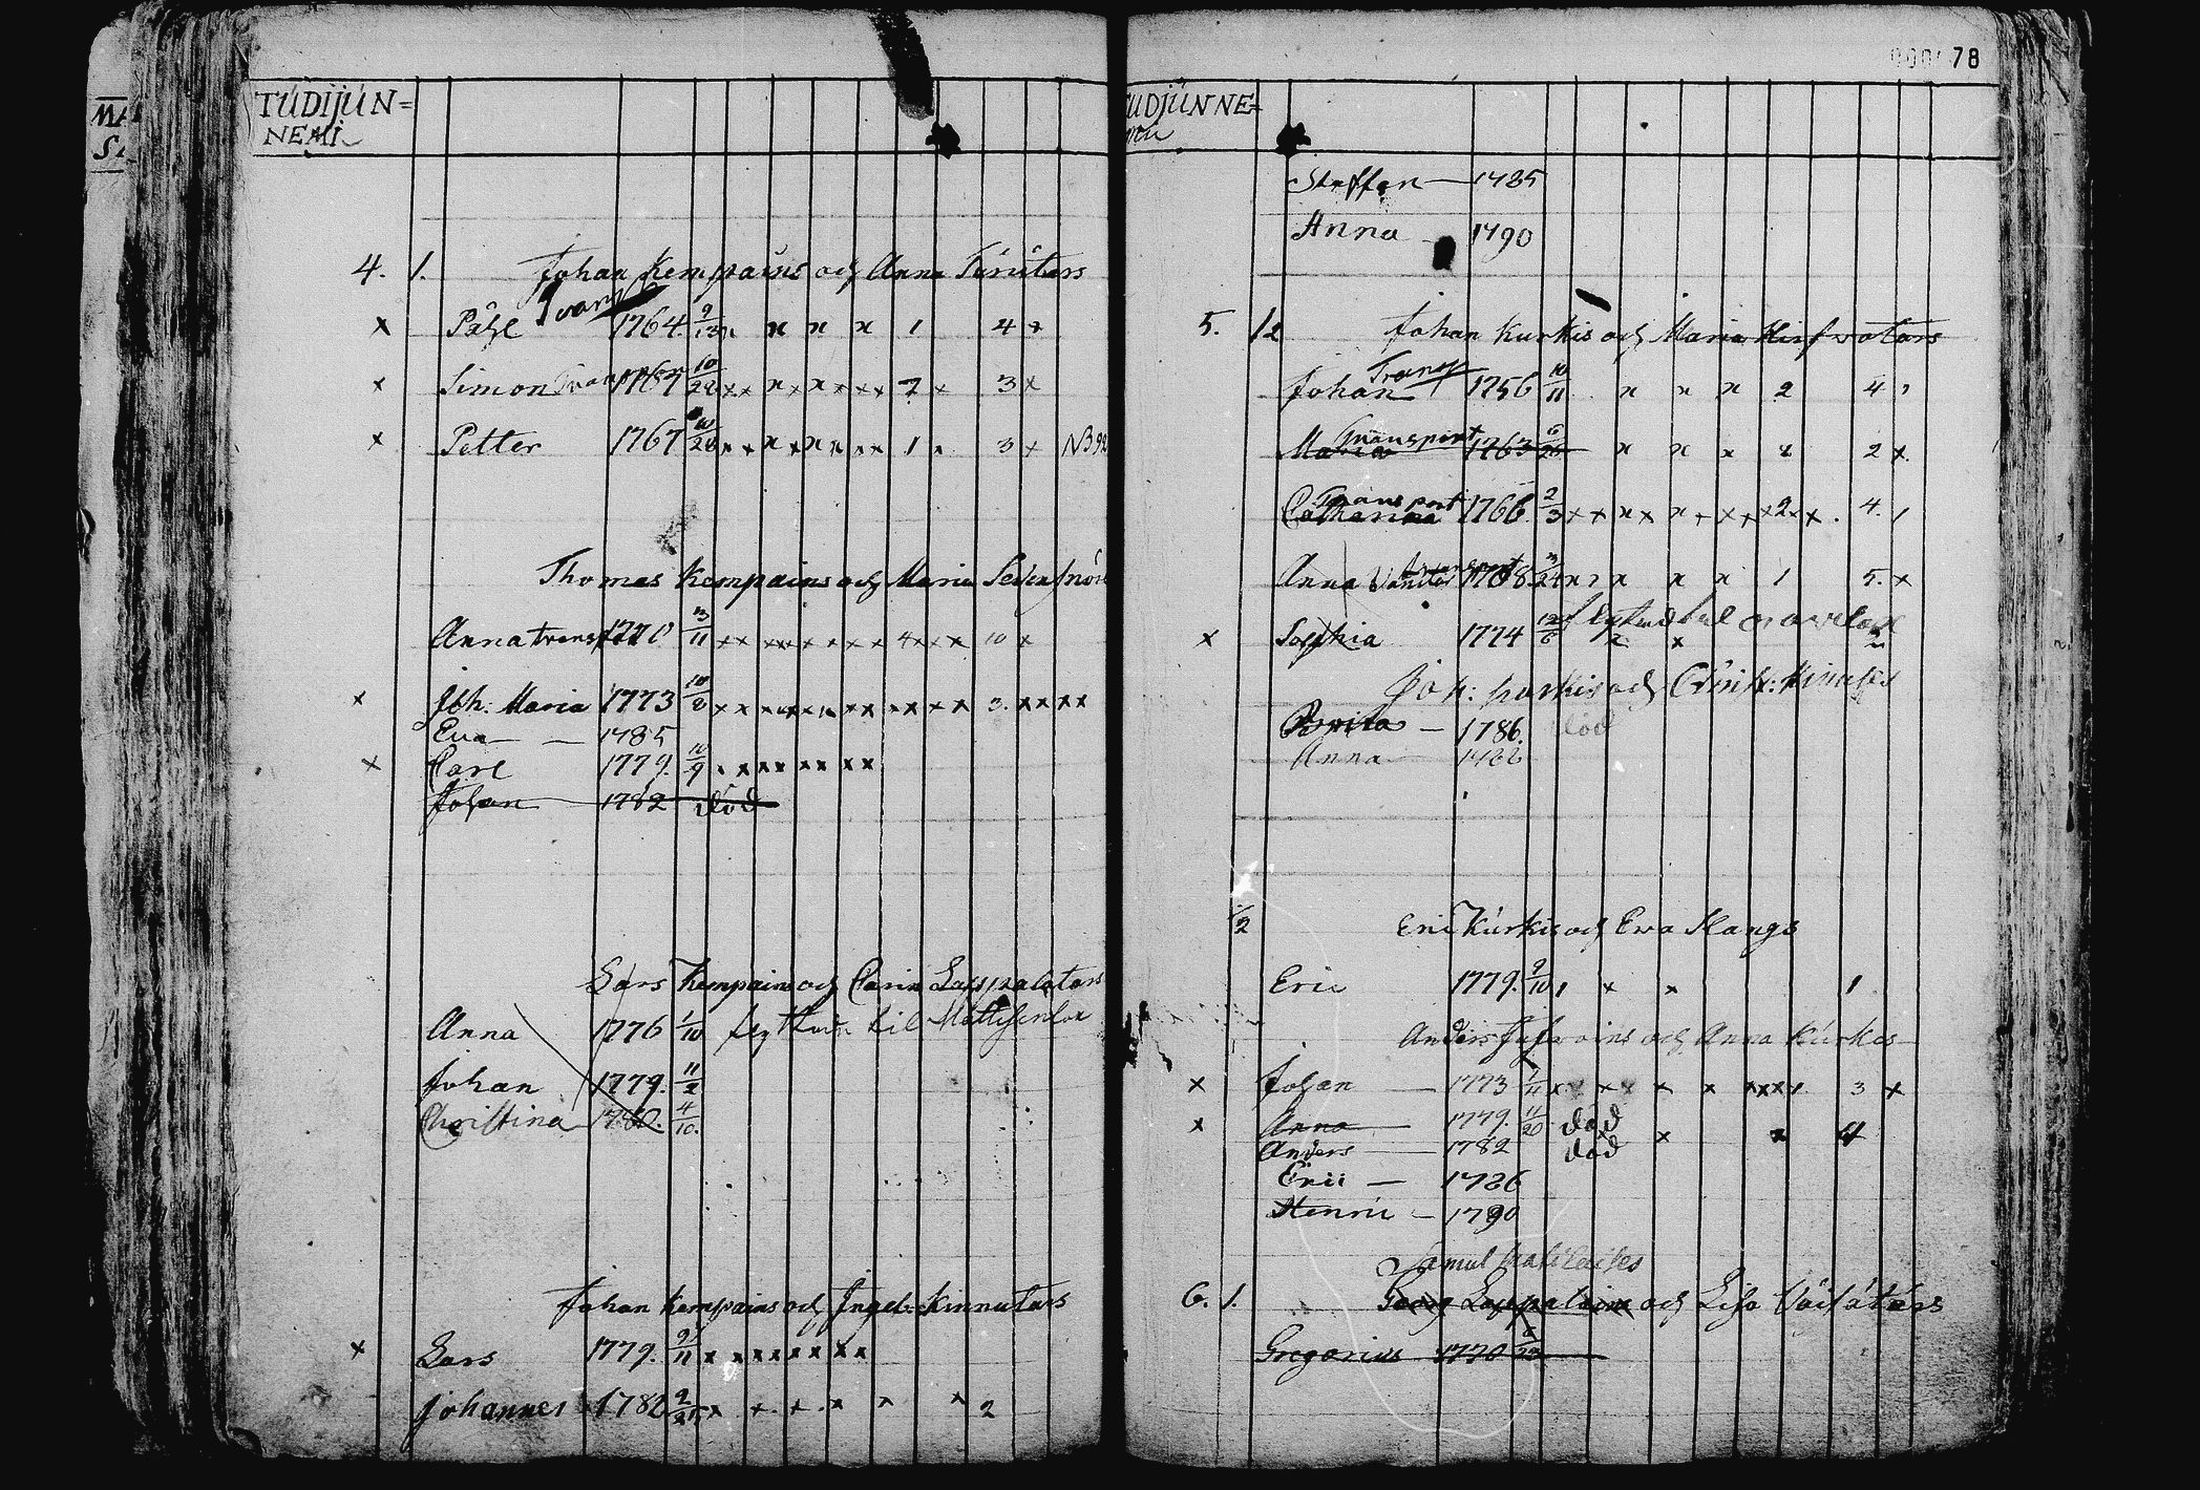 MA
TUDIJUN=
NEMI
4. 1. Johan Kempains och Anna
Påhl Transp 1764. 9/13 x x x x 1 4 x
x Simon 1767 10/28 x x x x x x x x 7 x 3 x
x Petter 1767 10/28 x x x x x x x x 1 x 3 x NB 92
Thomas Kempains och Maria
Anna transp 1770 3/11 x x x x x x x x x 4 x x x 10 x
x Joh: Maria 1773 10/8 x x x x x x x x x x x x 3. x x x x
Eva — 1785
x Carl 1779. 10/9 x x x x x x x
Johan 1782 död
Lars Kempains och Carin Lappalatars
Anna 1776 1/10 till
Johan 1779. 11/2
Christina 1780. 4/10.
Johan Kempains och Ingeb: Kinnutars
x Lars 1779. 9/11 x x x x x x x
Johannes 1782 9/21 x x x x x x 2
78
UDJUNNE=
Staffan — 1785
Anna — 1790
5. 12 Johan Kurkis och Maria
Johan Transp 1756 10/11 x x x 2 4
Maria Transport 1763 6/26 x x x x 2 x
Catharina Transport 1766 2/3 x x x x x x x x x 2 x x 4. 1
Anna Transport 1768 3/24 x x x x 1 5. x
x Sophia 1774 12/6 x x
Joh: Kurkis och
Brita — 1786. död
Anna
1/2 Eric Kurkis och Eva Hangs
Eric 1779. 9/10 1 x x 1
Anders och Anna Kurkes
x Johan — 1773 1/11 x x x x x x x x x 3 x
x Anna — 1779. 11/20 död
Anders — 1782 död x x 4
Eric — 1786
Henric — 1790
Samul
6. 1. Georg Lappalain och Lisa
Gregorius 1770 8/23